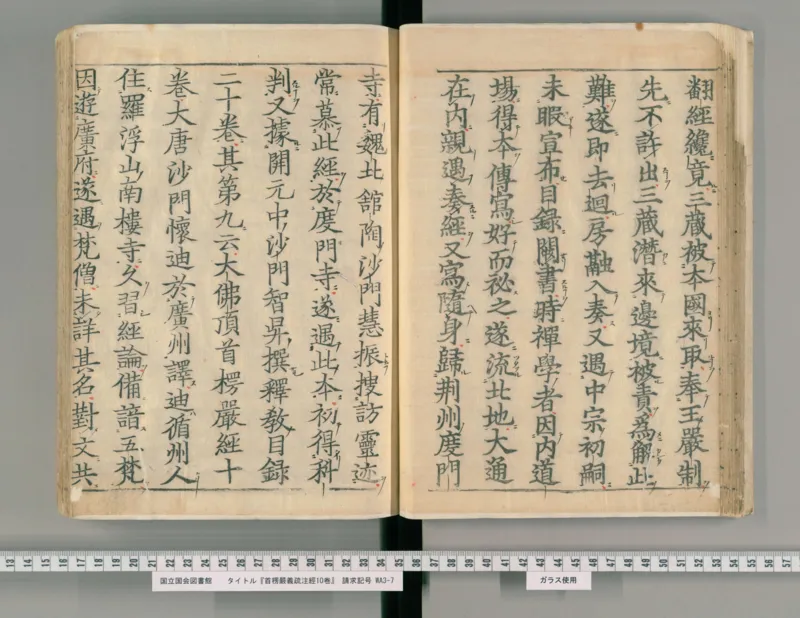 翻經纔竟三藏被本國來取奉王嚴制
先不許出三藏潛來邊境被責爲解此
難遂即去迴房融入奏又遇中宗初嗣
未暇宣布目録闕書時禪學者因内道
場得本傳寫好而祕之遂流北地大通
在内親遇奏經又寫隨身歸荆州度門
寺有魏北舘陶沙門慧振搜訪靈迹
常慕此經於度門寺遂遇此本初得科
判又據開元中沙門智昇撰釋教目録
二十卷其第九云大佛頂首楞嚴經十
卷大唐沙門懷迪於廣州譯迪循州人
住羅浮山南樓寺久習經論備諳五梵
因遊廣府遂遇梵僧未詳其名對文共
国立国会図書館 タイトル『首楞嚴義疏注經10巻』 請求記号 WA3-7
ガラス使用